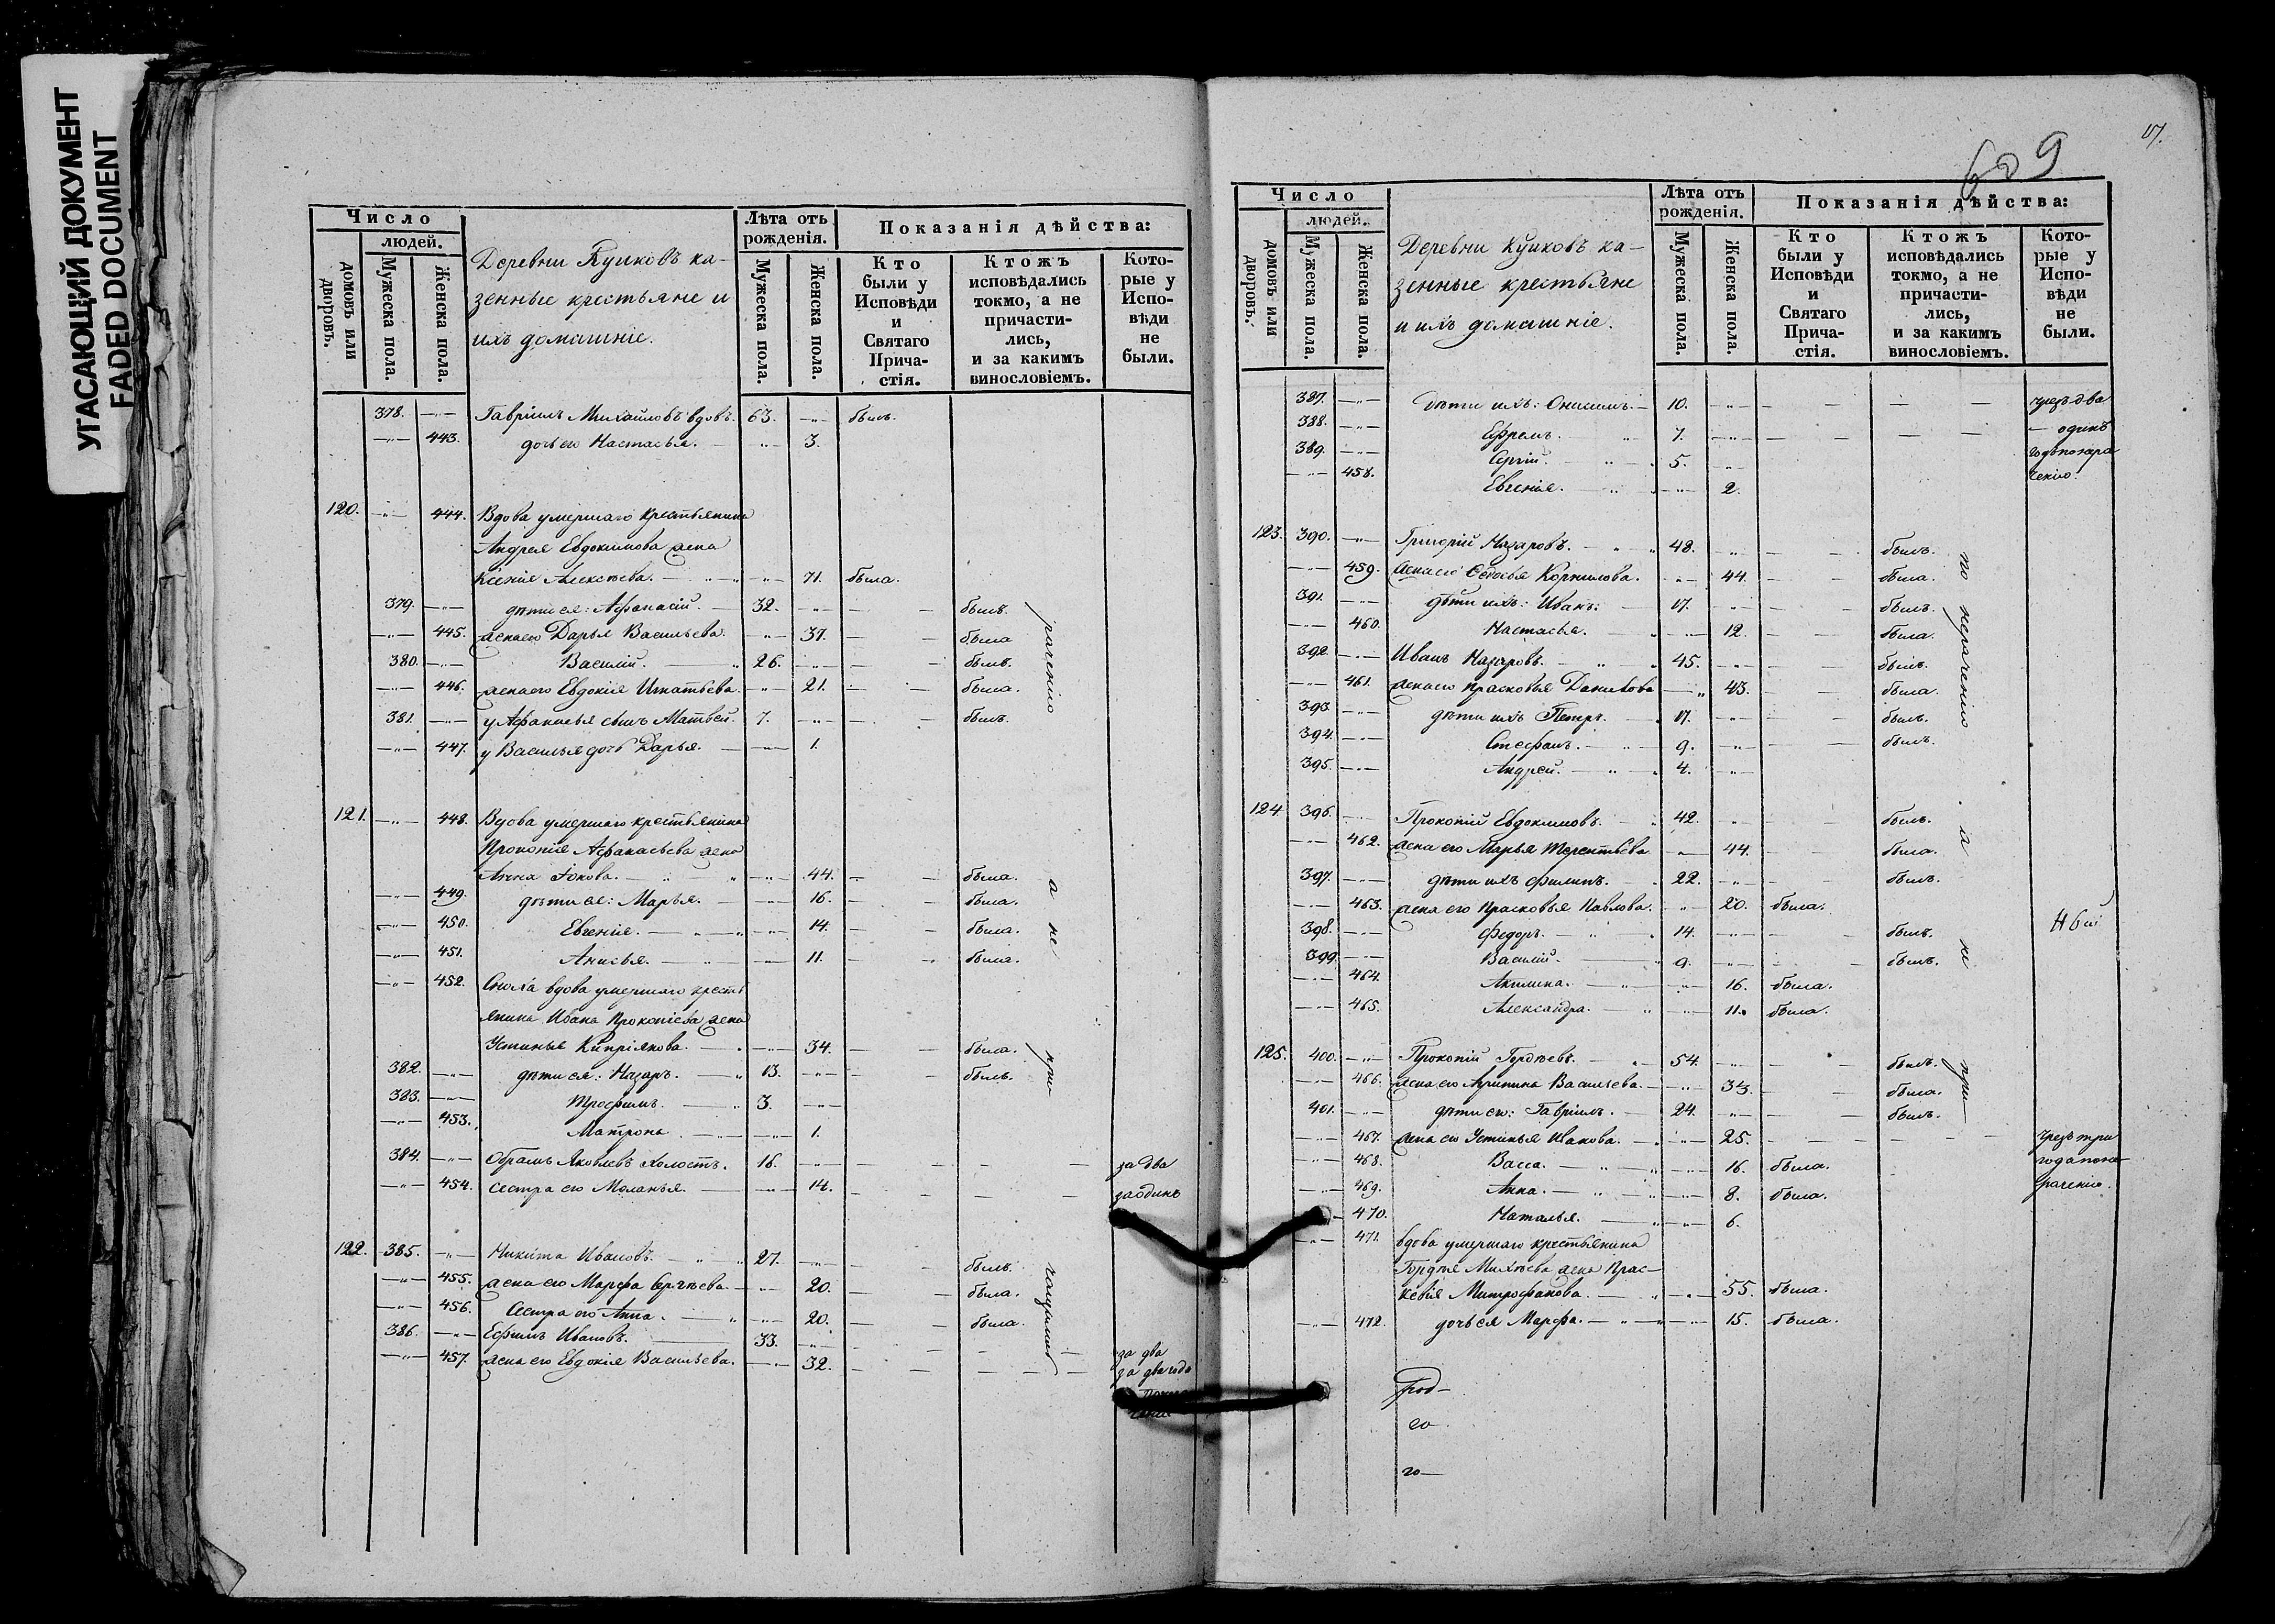 УГАСАЮЩИЙ ДОКУМЕНТ
FADED DOCUMENT
Число
людей.
домовъ или дворовъ.
Мужеска пола.
Женска пола.
Деревни Кушковъ ка-
зенные крестьяне и
ихъ домашніе.
Лѣта отъ рожденія.
Мужеска пола.
Женска пола.
Показанія дѣйства:
Кто были у Исповѣди и Святаго Прича- стія.
Ктожъ исповѣдались токмо, а не причасти- лись, и за какимъ винословіемъ.
Кото- рые у Испо- вѣди не были.
378. —"— Гавріилъ Михайловъ вдовъ. 63. —"— былъ.
—"— 443. дочь его Настасья. — "— 3.
120. —"— 444. Вдова умершаго крестьянина
Андрея Евдокимова жена
Ксенія Алексѣева. — " —"— 71. была.
379. —"— дѣти ея: Афанасій. — 32. —"— — — былъ.
—"— 445. жена его Дарья Васильева. —"— 37. — — была
380. —"— Василій. — " 26. —"— — — былъ.
—"— 446. жена его Евдокія Игнатьева. —"— 21. — — была.
381. —"— у Афанасья сынъ Матвей. 7. —"— — — былъ.
—"— 447. у Василья дочь Дарья. — —"— 1.
раченію
121. —"— 448. Вдова умершаго крестьянина
Прокопія Афанасьева жена
Анна Іонова. — " —"— 44. — — была.
—"— 449. дѣти ея: Марья. — —"— 16. — — была.
—"— 450. Евгенія. — " —"— 14. — — была.
—"— 451. Анисья. — " —"— 11. — — была.
—"— 452. Сноха вдова умершаго кресть
янина Ивана Прокопіева жена
Устинья Кипріянова. — —"— 34. — — была.
382. —"— дѣти ея: Назаръ. — " 13. —"— — — былъ.
383. —"— Трофимъ. — " 3. —"—
—"— 453. Матрона. — —"— 1.
384. —"— Абрамъ Яковлевъ холостъ. 16. —"— — — — — за два
—"— 454. сестра его Меланья. — —"— 14. — — — — за одинъ
а не
при
122. 385. —"— Никита Ивановъ. — " 27. —"— — — былъ.
—"— 455. жена его Марфа Сергѣева. —"— 20. — — была.
—"— 456. Сестра его Анна. — " —"— 20. — — была.
386. —"— Ефимъ Ивановъ. — 33. —"— — — — — за два
—"— 457. жена его Евдокія Васильева. —"— 32. — — — — за два года
609
17.
Число
людей.
домовъ или дворовъ.
Мужеска пола.
Женска пола.
Деревни Кушковъ ка-
зенные крестьяне
и ихъ домашніе.
Лѣта отъ рожденія.
Мужеска пола.
Женска пола.
Показанія дѣйства:
Кто были у Исповѣди и Святаго Прича- стія.
Ктожъ исповѣдались токмо, а не причасти- лись, и за какимъ винословіемъ.
Кото- рые у Испо- вѣди не были.
387. —"— Дѣти ихъ: Онисимъ. — 10. —"— — — — — чрезъ два
388. —"— Ефремъ. " 7. —"— — — — — — одинъ
389. —"— Сергій. — " 5. —"— годъ по нера
—"— 458. Евгенія. — " —"— 2. ченію.
123. 390. —"— Григорій Назаровъ. — " 48. —"— — — былъ.
—"— 459. жена его Ѳедосья Корнилова. —"— 44. — — была.
391. —"— дѣти ихъ: Иванъ. — 17. —"— — — былъ.
—"— 460. Настасья. — " —"— 12. — — была.
392. —"— Иванъ Назаровъ. — " 45. —"— — — былъ.
—"— 461. жена его Прасковья Данилова —"— 43. — — была.
393. —"— дѣти ихъ Петръ. — 17. —"— — — былъ.
394. —"— Стефанъ. — " 9. —"— — — былъ.
395. —"— Андрей. — " 4. —"—
по нераченію
124. 396. —"— Прокопій Евдокимовъ. — 42. —"— — — былъ.
—"— 462. жена его Марья Терентьева. —"— 44. — — была.
397. —"— дѣти ихъ Филипъ. — 22. —"— — — былъ.
—"— 463. жена его Прасковья Павлова. —"— 20. была.
398. —"— Федоръ. — " 14. —"— — былъ.
399. —"— Василій. — 9. —"— — — былъ.
—"— 464. Акилина. — " —"— 16. была.
—"— 465. Александра. — " —"— 11. была.
а
не
125. 400. —"— Прокопій Гордѣевъ. — " 54. —"— — былъ.
—"— 466. жена его Агрипина Васильева. —"— 33. — — была.
401. —"— дѣти его: Гавріилъ. — 24. —"— — — былъ.
—"— 467. жена его Устинья Иванова. —"— 25. — — — — чрезъ три
—"— 468. Васса. — " —"— 16. была. — года по не-
—"— 469. Анна. — " —"— 8. была. раченію.
—"— 470. Наталья. — " —"— 6.
—"— 471. вдова умершаго крестьянина
Гордѣя Михѣева жена Прас-
кевія Митрофанова. — " —"— 55. была.
—"— 472. дочь ея Марфа. — " —"— 15. была.
при—